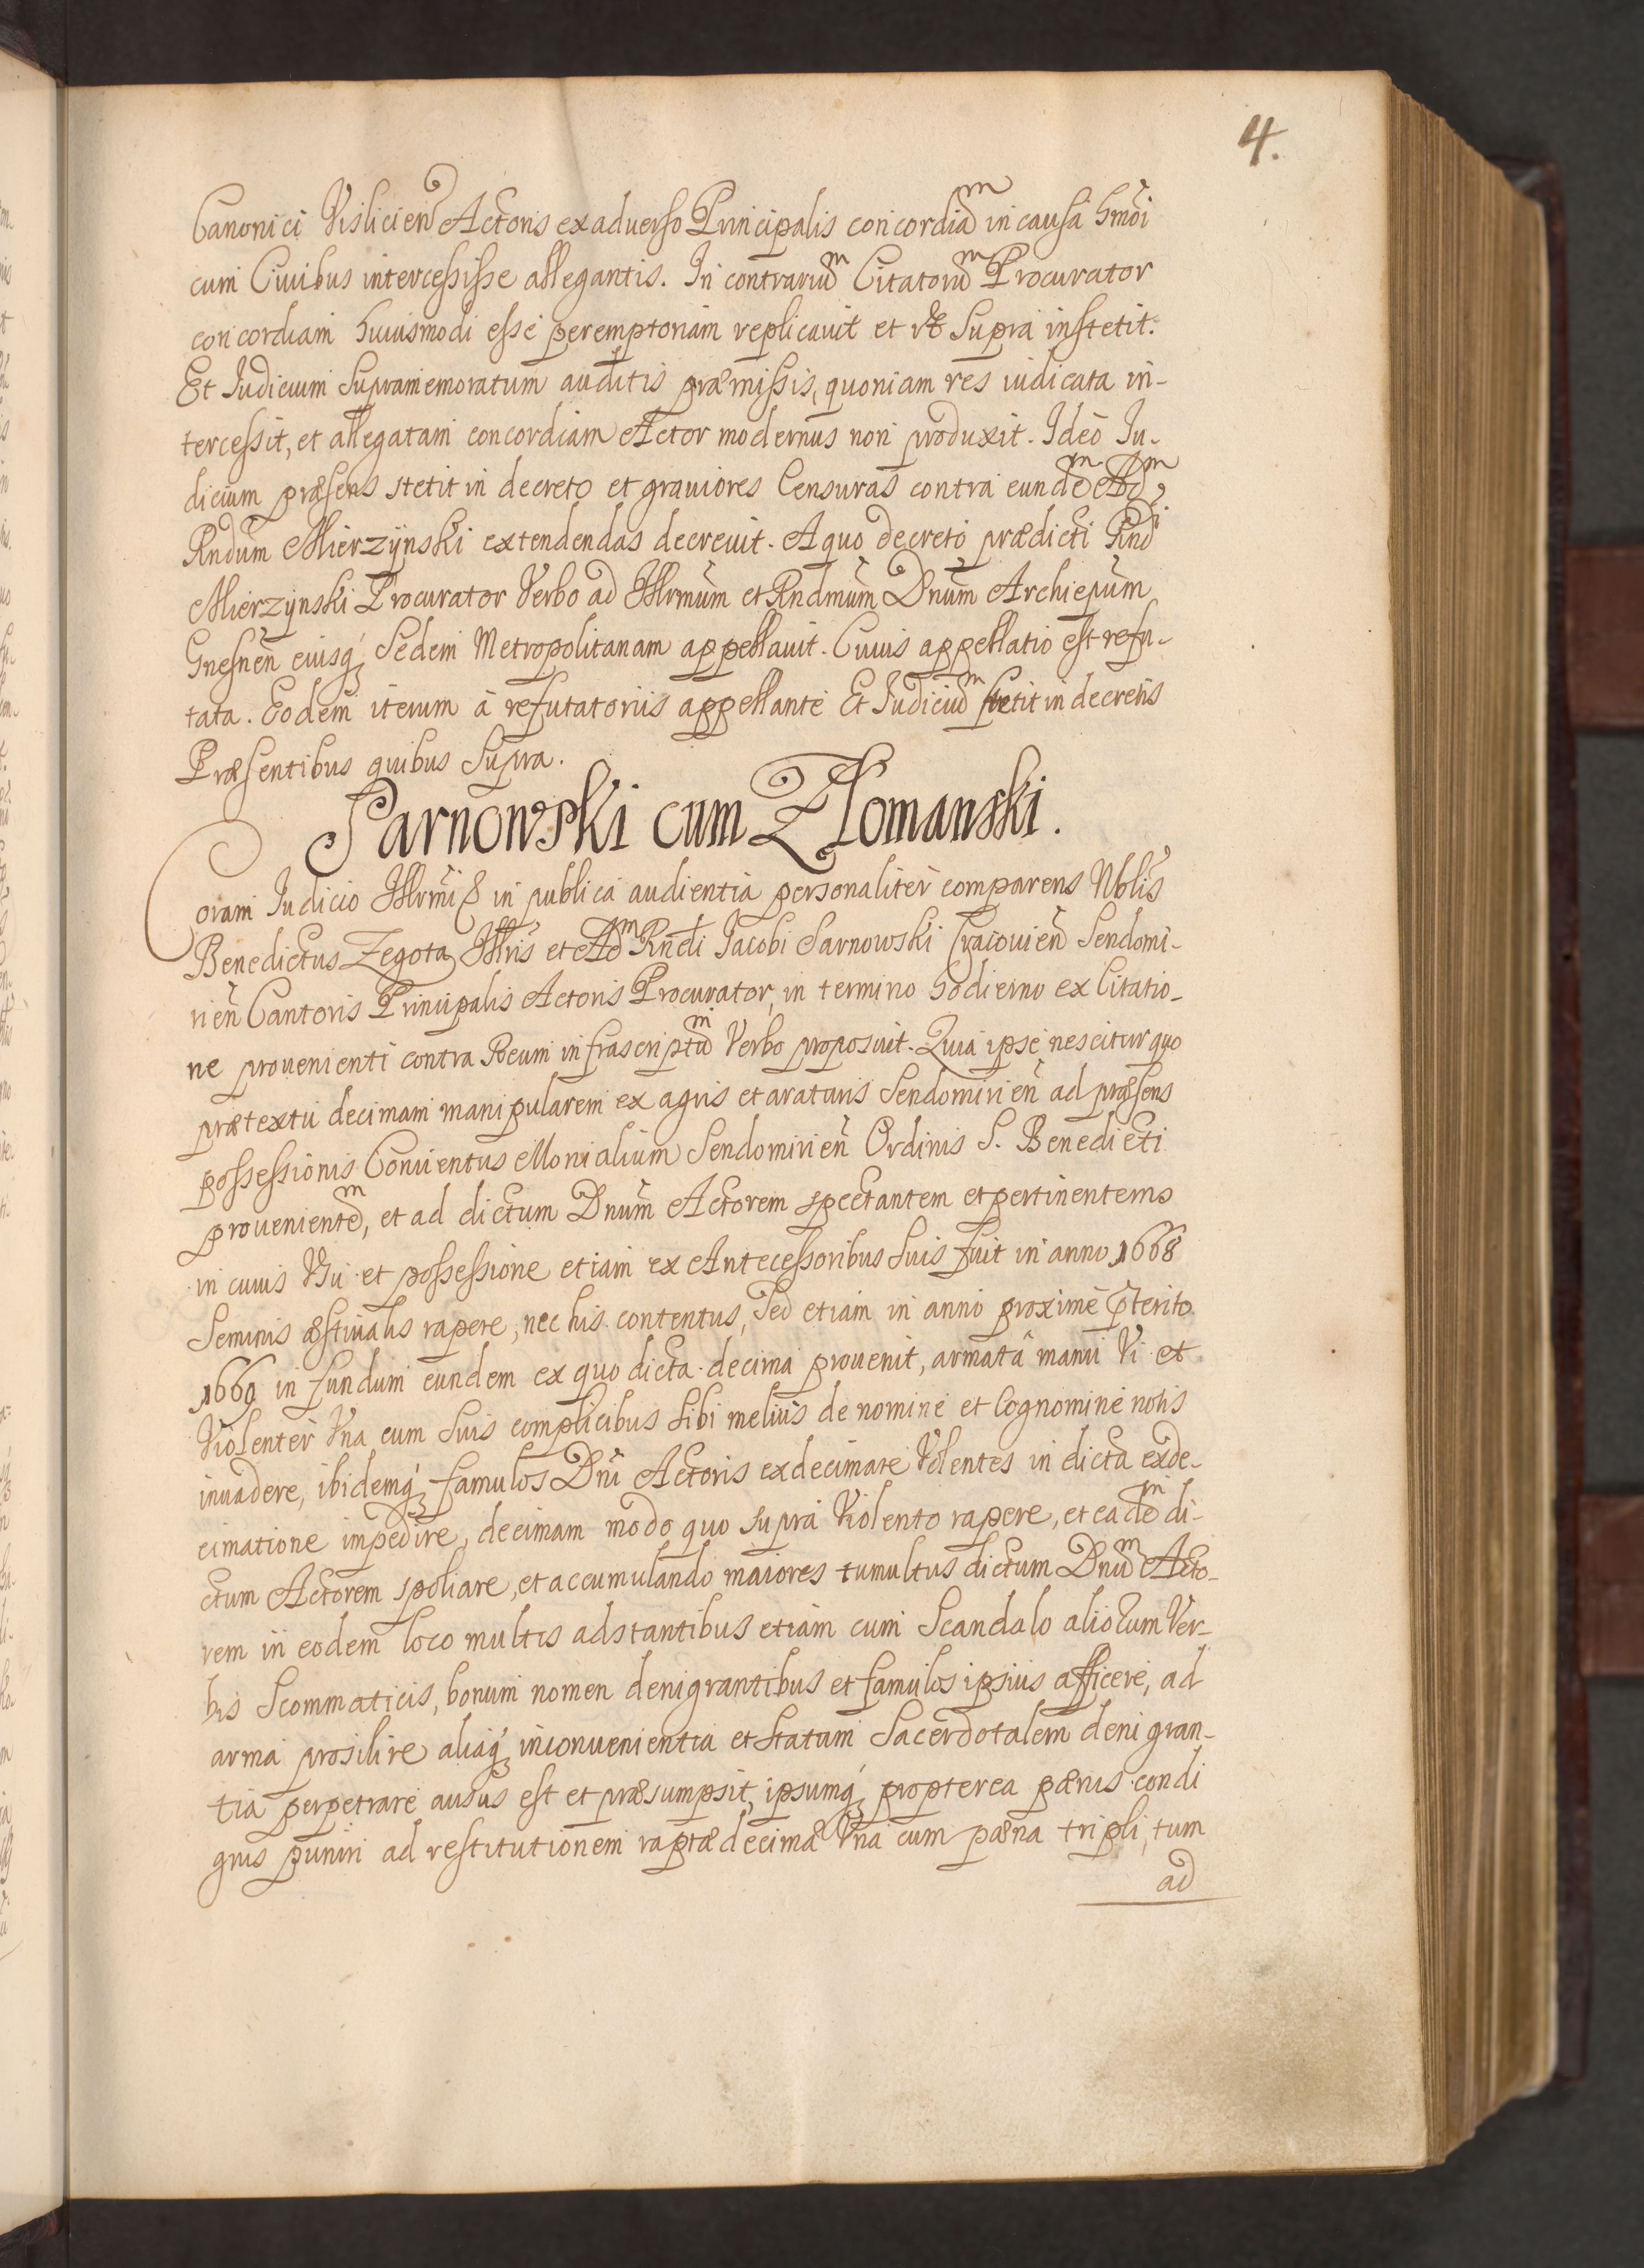 4.
Canonici Vislicien Actoris ex aduerso Principalis concordiam in causa hmoi
cum Ciuibus intercessisse allegantis. In contrarium Citatorum Procurator
concordiam huiusmodi esse peremptoriam replicauit et vt supra institit.
Et Iudicium Supramemoratum auditis præmissis, quoniam res iudicata in-
tercessit, et allegatam concordiam Actor modernus non produxit. Ideo Iu-
dicium præsens stetit in decreto et grauiores Censuras contra eundem Adm
Rndum Mierzynski extendendas decreuit. A quo decreto prædicti Rndi
Mierzynski Procurator Verbo ad Illrmum et Rndmum Dnum Archiepum
Gnesnen eiusq Sedem Metropolitanam appellauit. Cuius appellatio est refu-
tata. Eodem iterum à refutatoriis appellante Et Iudicium stetit in decretis
Præsentibus quibus Supra.
Sarnowski cum Zlomanski.
Coram Iudicio Illrmi &c in publica audientia personaliter comparens Nblis
Benedictus Zegota Illris et Adm Rndi Iacobi Sarnowski Cracouien Sendomi-
rien Cantoris Principalis Actoris Procurator, in termino hodierno ex Citatio-
ne prouenienti contra Reum infrascriptum Verbo proposuit. Quia ipse nescitur quo
prætextu decimam manipularem ex agris et araturis Sendomirien ad præsens
possessionis Conuentus Monialium Sendomirien Ordinis S. Benedicti
prouenientem, et ad dictum Dnum Actorem spectantem et pertinentem
in cuius Vsu et possessione etiam ex Antecessoribus Suis fuit in anno 1668
Seminis æstiualis rapere, nec his contentus, Sed etiam in anno proxime pterito
1669 in fundum eundem ex quo dicta decima prouenit, armatâ manu Vi et
Violenter Vna cum Suis complicibus sibi melius de nomine et Cognomine notis
inuadere, ibidemq famulos Dni Actoris exdecimare Volentes in dicta exde-
cimatione impedire, decimam modo quo supra Violento rapere, et eadem di-
ctum Actorem spoliare, et accumulando maiores tumultus dictum Dnum Acto-
rem in eodem loco multis adstantibus etiam cum Scandalo aliorum Ver-
bis Scommaticis, bonum nomen denigrantibus et famulos ipsius afficere, ad
arma prosilire aliaq inconuenientia et Statum Sacerdotalem denigran-
tia perpetrare ausus est et præsumpsit, ipsumq propterea pænis condi
gnis puniri ad restitutionem raptæ decimæ Vna cum pæna tripli, tum
ad